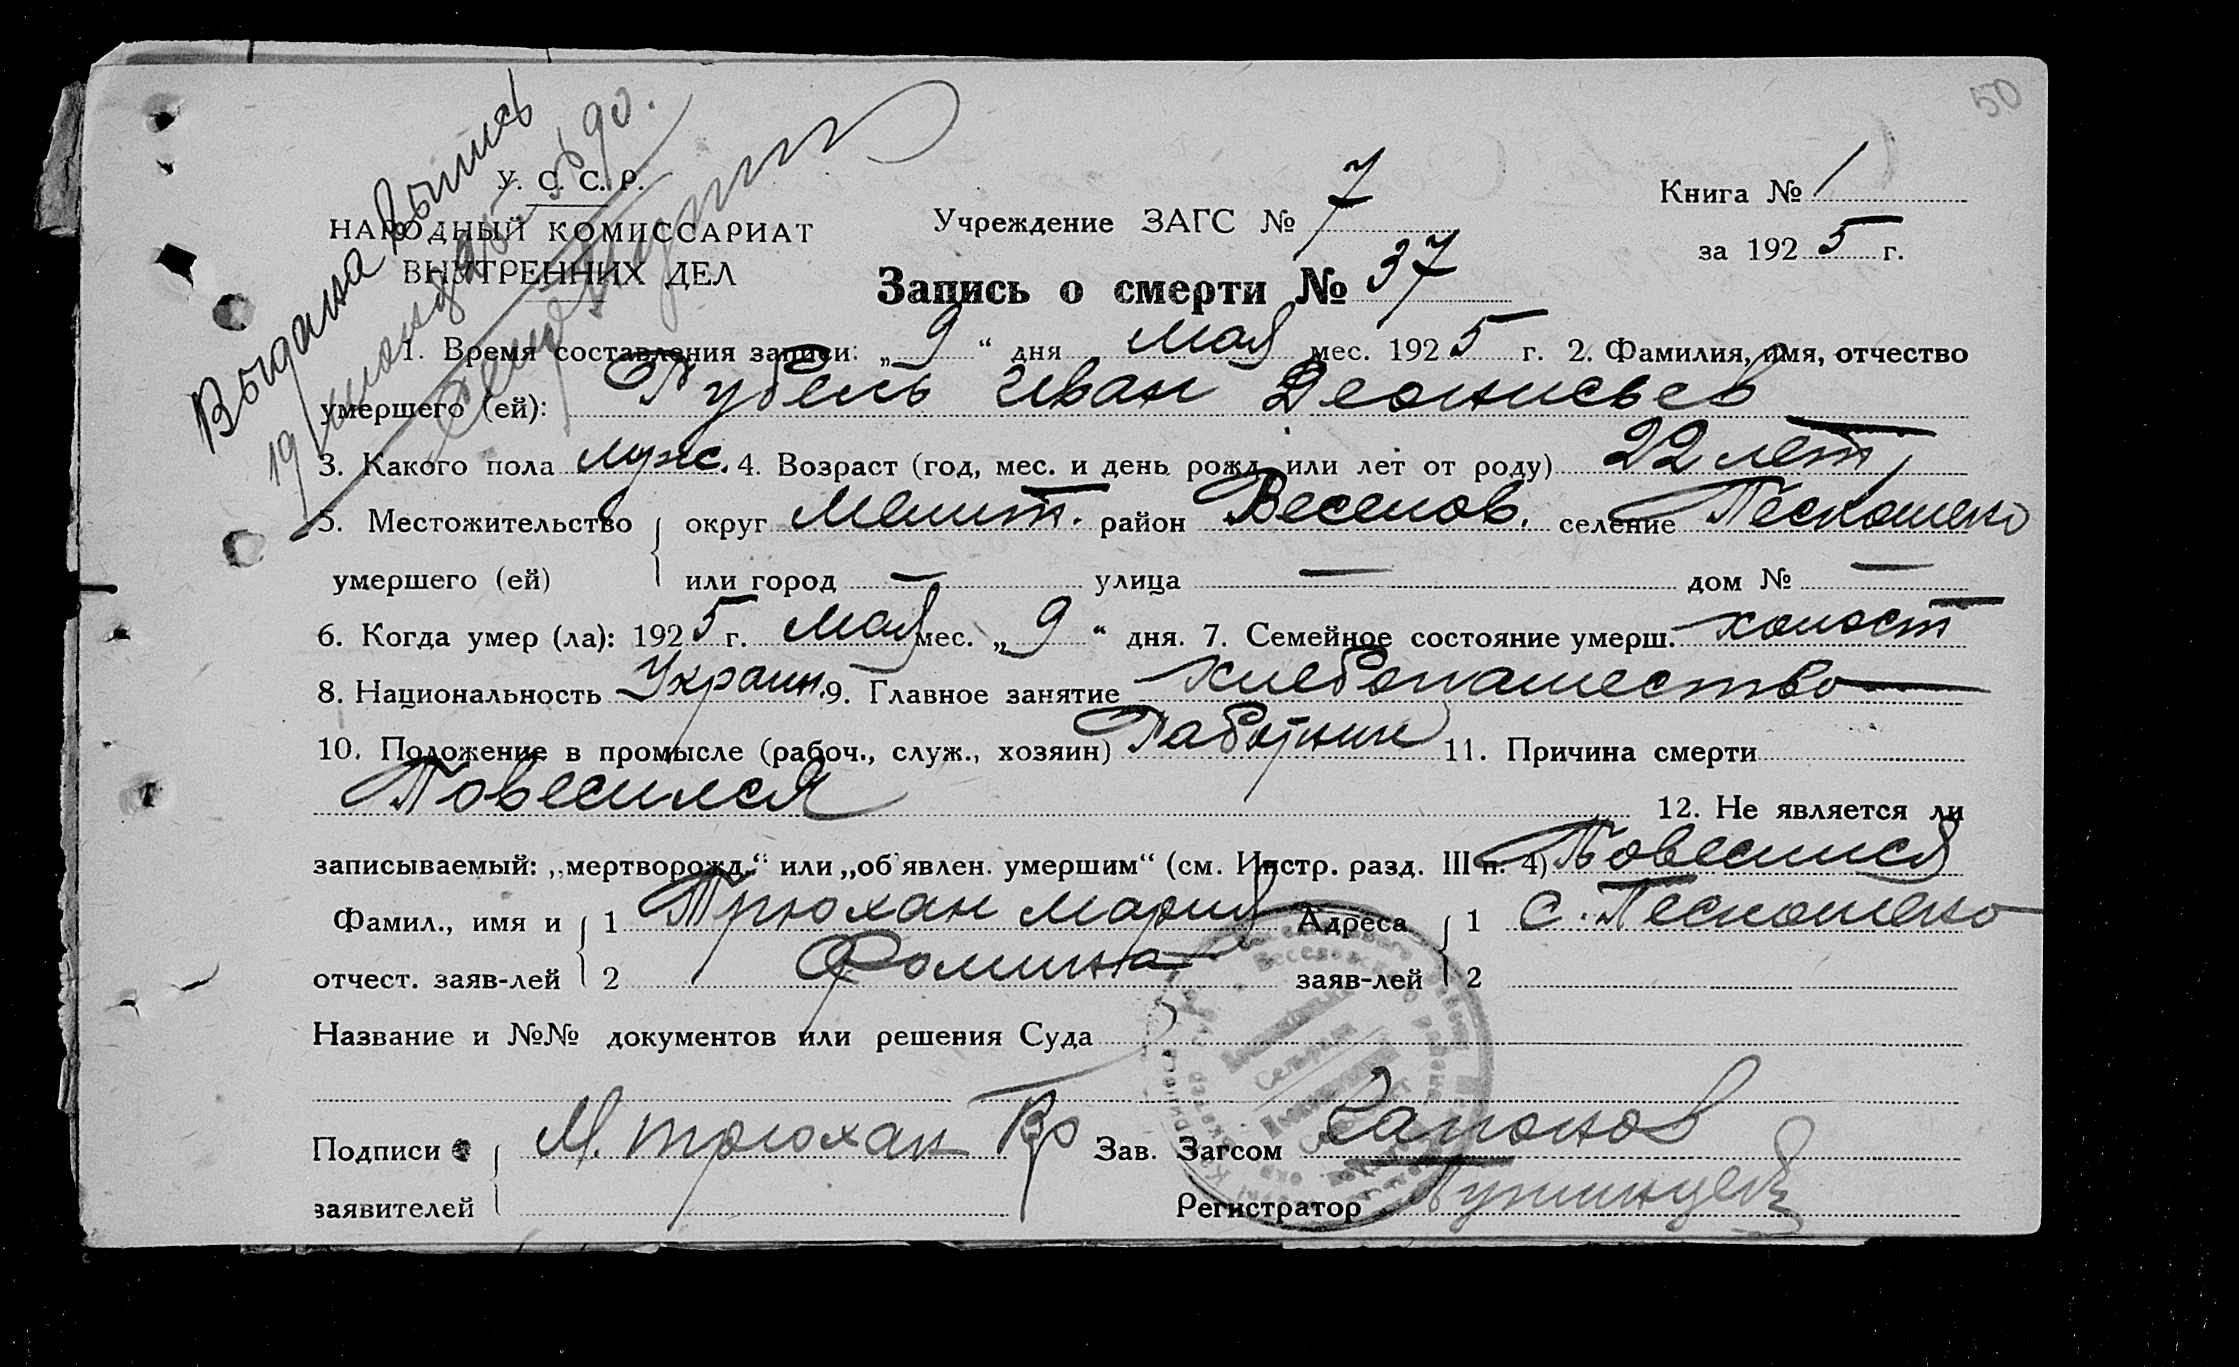 50
Выдана выпись
У. С. С. Р.
НАРОДНЫЙ КОМИССАРИАТ
ВНУТРЕННИХ ДЕЛ
Учреждение ЗАГС № 7
Книга № 1
за 1925 г.
Запись о смерти № 37
1. Время составления записи: „9“ дня мая мес. 1925 г. 2. Фамилия, имя, отчество
умершего (ей): Рубель Иван Деонисьев
3. Какого пола муж. 4. Возраст (год, мес. и день рожд. или лет от роду) 22 лет
5. Местожительство округ Мелит. район Веселов. селение Пескошено
умершего (ей) или город — улица — дом № —
6. Когда умер (ла): 1925 г. мая мес. „9“ дня. 7. Семейное состояние умерш. холост
8. Национальность Украин. 9. Главное занятие хлебопашество
10. Положение в промысле (рабоч., служ., хозяин) Работник 11. Причина смерти
Повесился
12. Не является ли
записываемый: „мертворожд.“ или „об'явлен. умершим“ (см. Инстр. разд. III п. 4) Повесился
Фамил., имя и 1 Трюхан Мария Адреса 1 с. Пескошено
отчест. заяв-лей 2 Фомина заяв-лей 2
Название и №№ документов или решения Суда
Подписи М. Трюхан Вр Зав. Загсом Сапонов
заявителей Регистратор